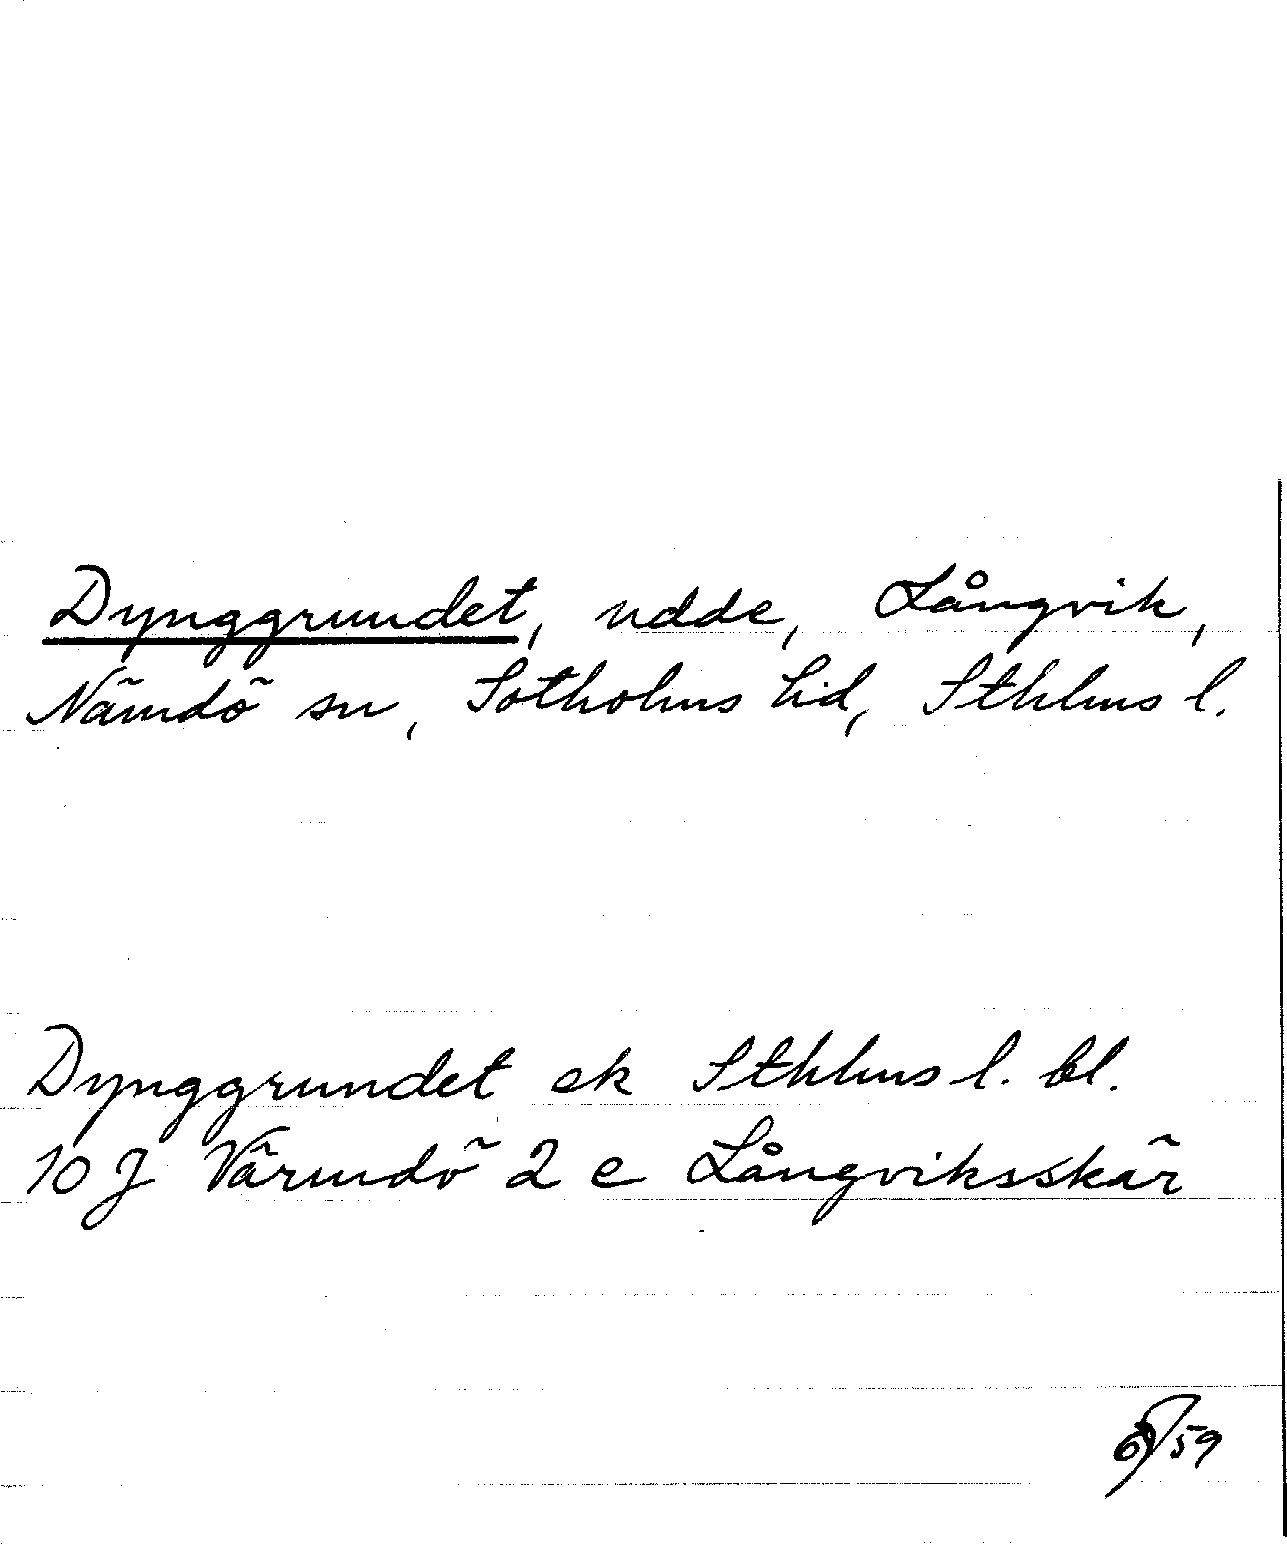 Dynggrundet, udde, Långvik,
Nämdö sn, Sotholms hd, Sthlms l.
Dynggrundet ek Sthlms l. bl.
10 J Värmdö 2 e Långviksskär
59